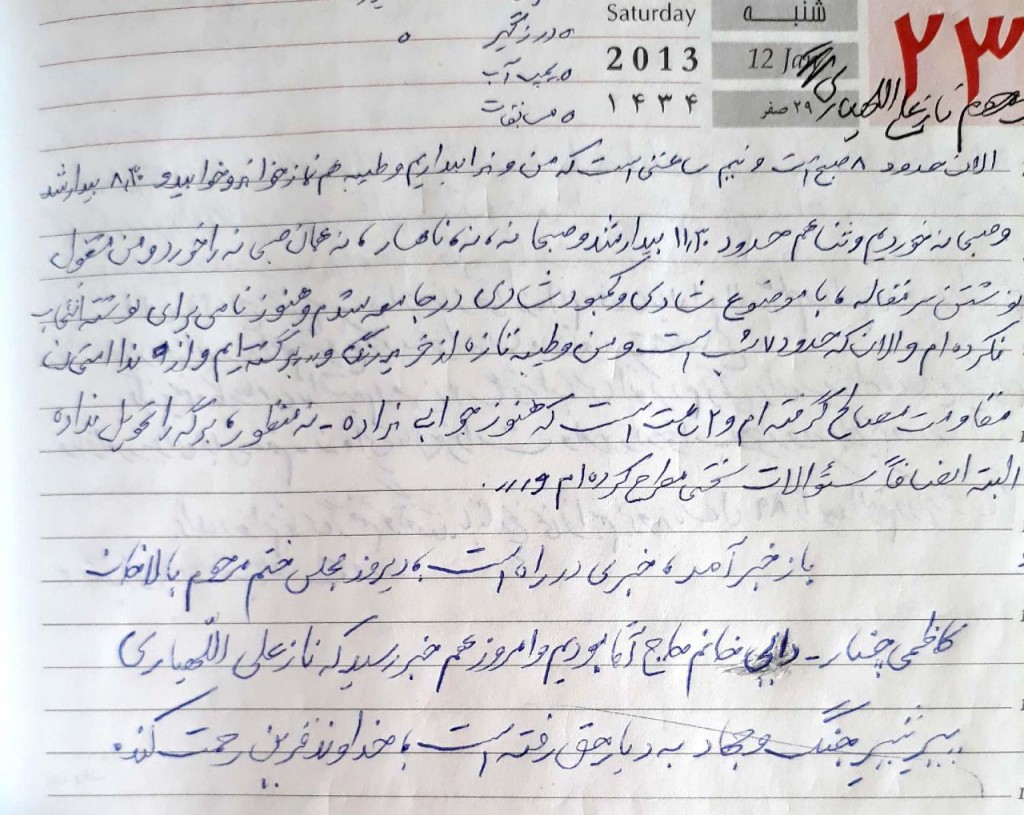 درزگیر
پمپ آب
مسابقات
Saturday
2013
۱۴۳۴
شنبه
12 Jan
۲۹ صفر
۲۳
مرحوم نازعلی اللهیاری
الان حدود ۸ صبح است و نیم ساعتی است که من و بیداریم و طیبه هم نماز خواند و خوابید و ۸٫۳۰ بیدار شد
و صبحانه خوردیم و ثنا هم حدود ۱۱٫۳۰ بیدار شد و صبحانه، نه، ناهار، نه همان صبحانه را خورد و من مشغول
نوشتن سرمقاله، با موضوع شادی و کمبود شادی در جامعه شدم و هنوز نامی برای نوشته انتخاب
نکرده ام و الان که حدود ۷ شب است و من و طیبه تازه از خرید برگشته ایم و از ندا امتحان
مقاومت مصالح گرفته ام و ۲ ساعت است که هنوز جوابی نداده - به منظور، برگه را تحویل نداده
البته انصافاً سئوالات سختی مطرح کرده ام و...
باز خبر آمد، خبری در راه است، دیروز مجلس ختم مرحوم بالاخان
کاظمی چنار - دایی خانم حاج آقا بودیم و امروز هم خبر رسید که نازعلی اللهیاری
پیر جنگ و جهاد به دیار حق رفته است، خداوند قرین رحمت کند.